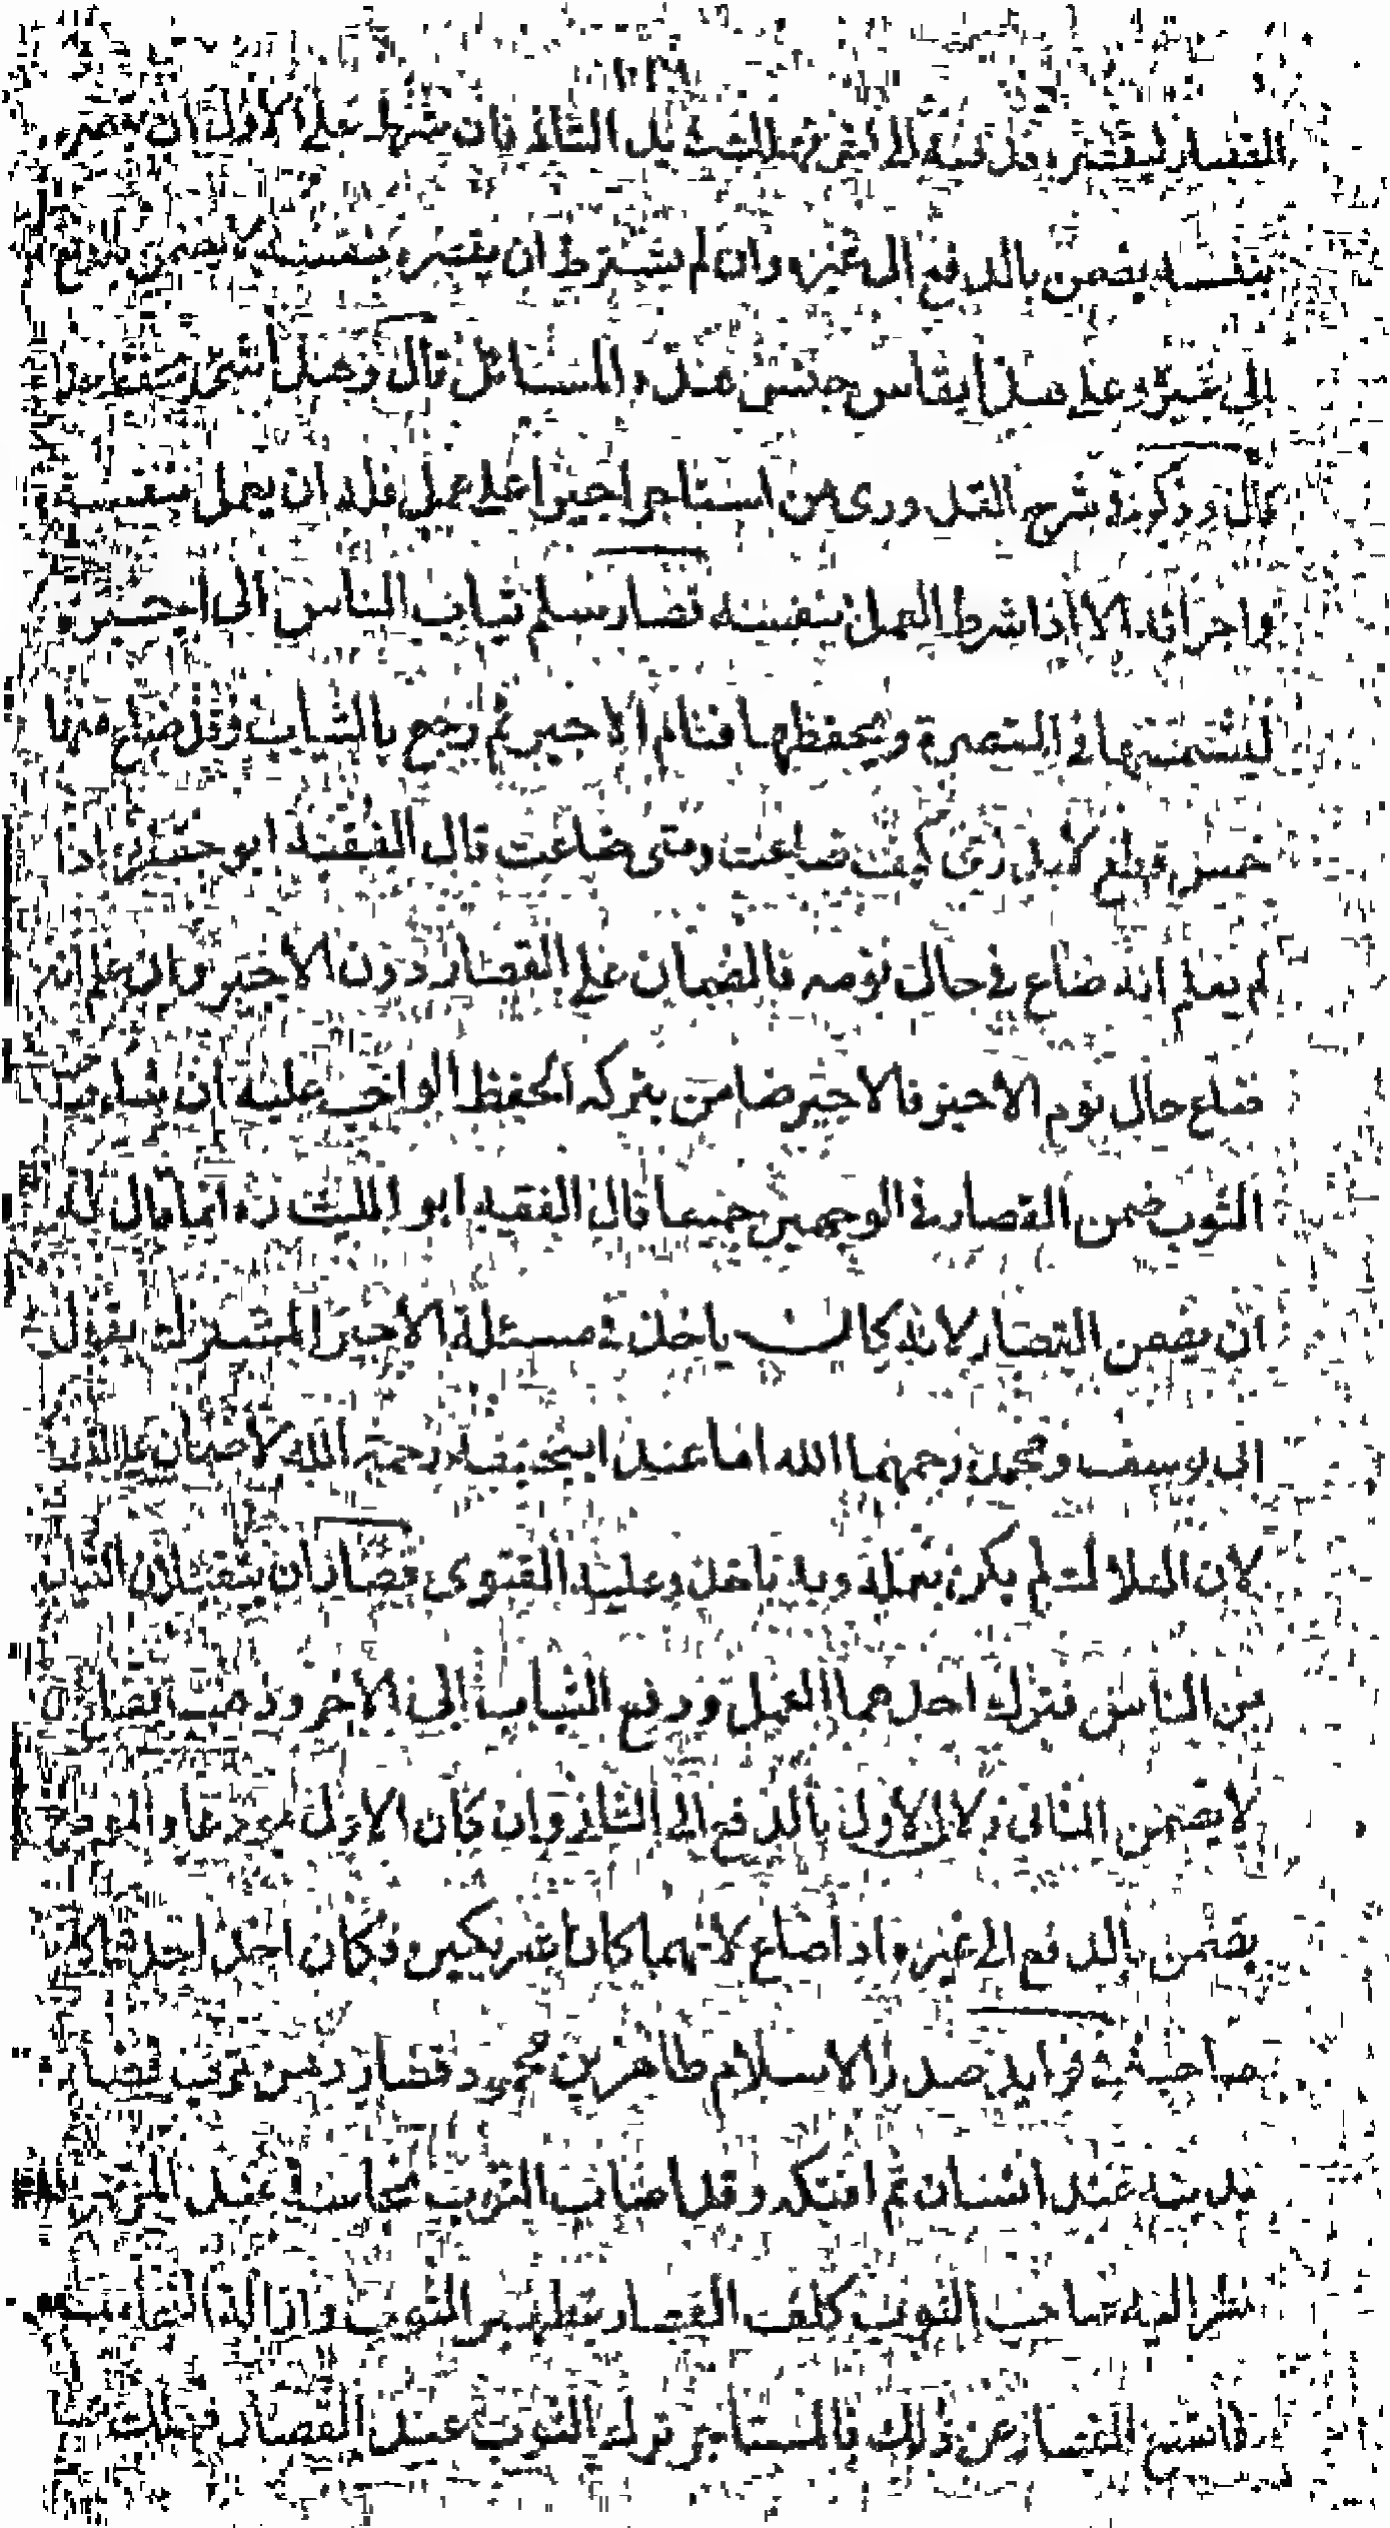 القصار ليقصره فدفعه الى اخر فهلك الثوب بيد الثاني فان شرط على الاول ان يقصره
بنفسه يضمن بالدفع الى غيره وان لم يشترط ان يقصره بنفسه لا يضمن بالدفع
الى غيره وعلى هذا يقاس جنس هذه المسائل قال
قال وذكر في شرح القدوري من استاجر اجيرا على عمل فله ان يعمل بنفسه
واجرائه الا اذا شرط العمل بنفسه قصار سلم ثياب الناس الى اجيره
ليشمسها في المقصرة ويحفظها فنام الاجير ثم رجع بالثياب وقد ضاع منها
خمس قطع لا يدرى كيف ضاعت ومتى ضاعت قال الفقيه ابو جعفر اذا
لم يعلم انه ضاع في حال نومه فالضمان على القصار دون الاجير وان علم انه
ضاع حال نوم الاجير فالاجير ضامن بتركه الحفظ الواجب عليه ان شاء
الثوب ضمن القصار في الوجهين جميعا قال الفقيه ابو الليث ره انما قال له
ان يضمن القصار لانه كان ياخذ في مسئلة الاجير المشترك بقول
ابي يوسف ومحمد رحمهما الله اما عند ابيحنيفة رحمه الله لا ضمان على القصار
لان الهلاك لم يكن بعمله وبه ناخذ وعليه الفتوى قصاران يتقبلان الثياب
من الناس فترك احدهما العمل ودفع الثياب الى الاخر وذهب
لا يضمن الثاني ولا الاول بالدفع الى الثاني وان كان الاول مودعا والمودع
يضمن بالدفع الى غيره واذا ضاع لانهما كانا شريكين فكان اخذ احدهما كاخذ
صاحبه في فوايد صدر الاسلام طاهر بن محمود قصار رهن ثوب قصارة
بدينه عند انسان ثم افتكه وقد اصاب الثوب نجاسة عند المرتهن
نظر اليه صاحب الثوب كلف القصار تطهير الثوب وازالة النجاسة
فامتنع القصار عن ذلك فالمستاجر ترك الثوب عند القصار فهلك